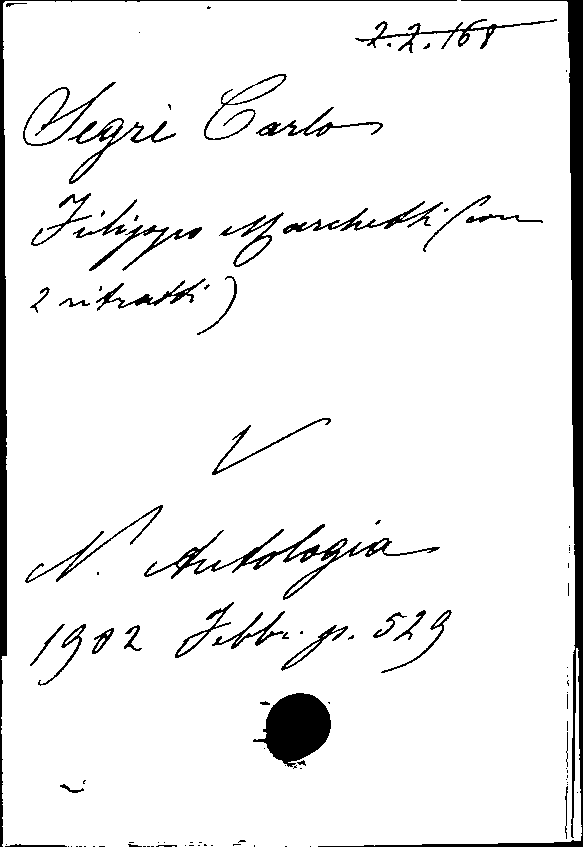 2.2.168
Segrè Carlo
Filippo Marchetti (con
2 ritratti)
V
N. Antologia
1902 Febbr. p. 529